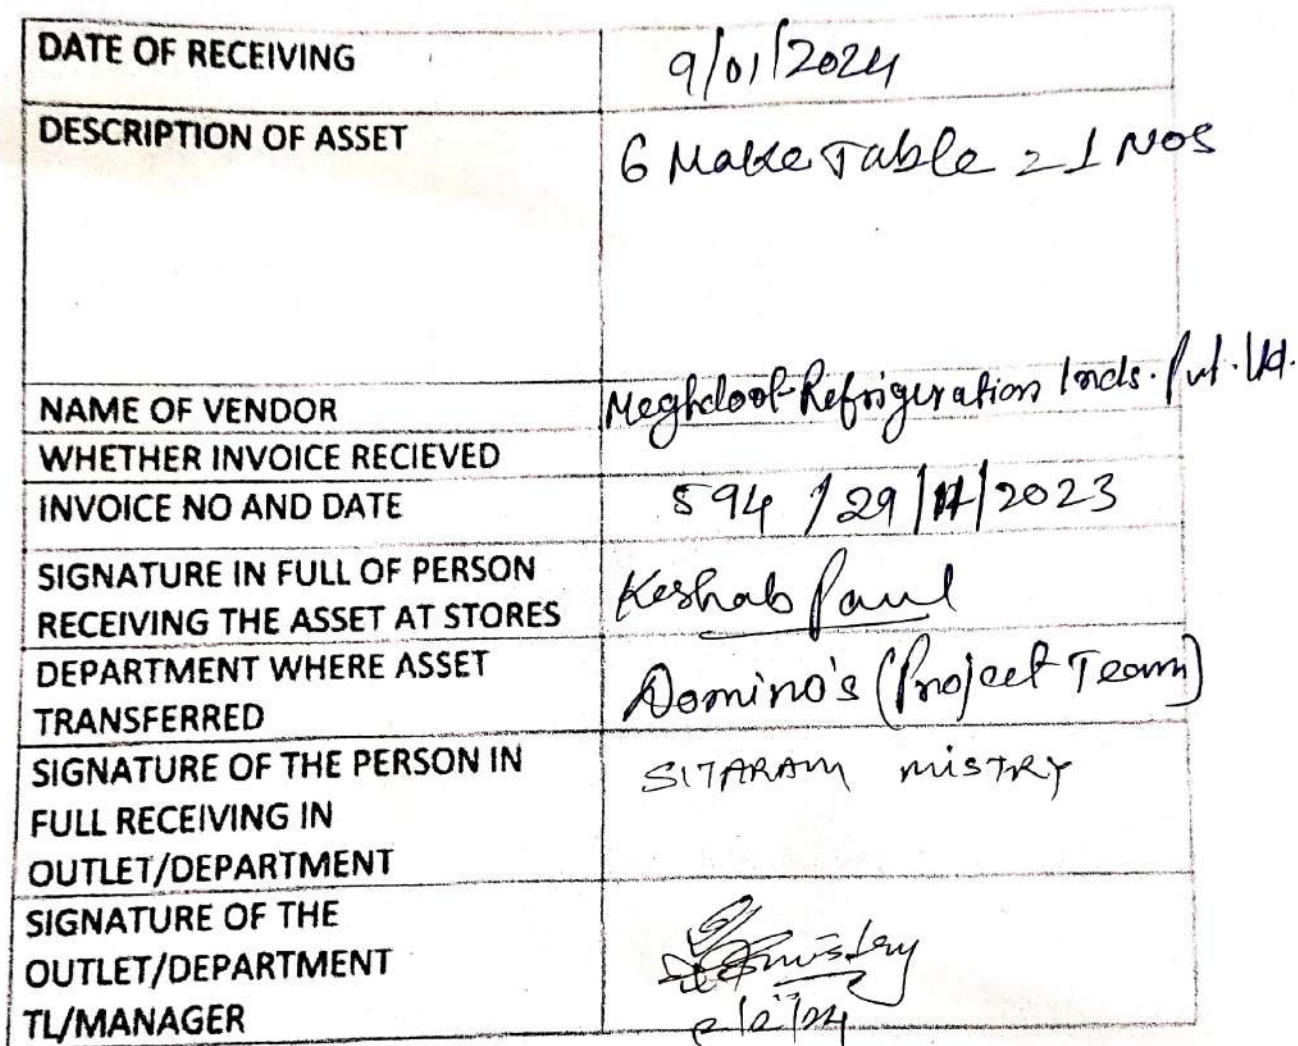 DATE OF RECEIVING 9/01/2024
DESCRIPTION OF ASSET 6 Make Table = 1 NOS
NAME OF VENDOR Meghdoot Refrigeration Inds. Pvt. Ltd.
WHETHER INVOICE RECIEVED
INVOICE NO AND DATE 594 / 29 / / 2023
SIGNATURE IN FULL OF PERSON
RECEIVING THE ASSET AT STORES Keshab Paul
DEPARTMENT WHERE ASSET
TRANSFERRED Domino's (Project Team)
SIGNATURE OF THE PERSON IN SITARAM MISTRY
FULL RECEIVING IN
OUTLET/DEPARTMENT
SIGNATURE OF THE
OUTLET/DEPARTMENT
TL/MANAGER